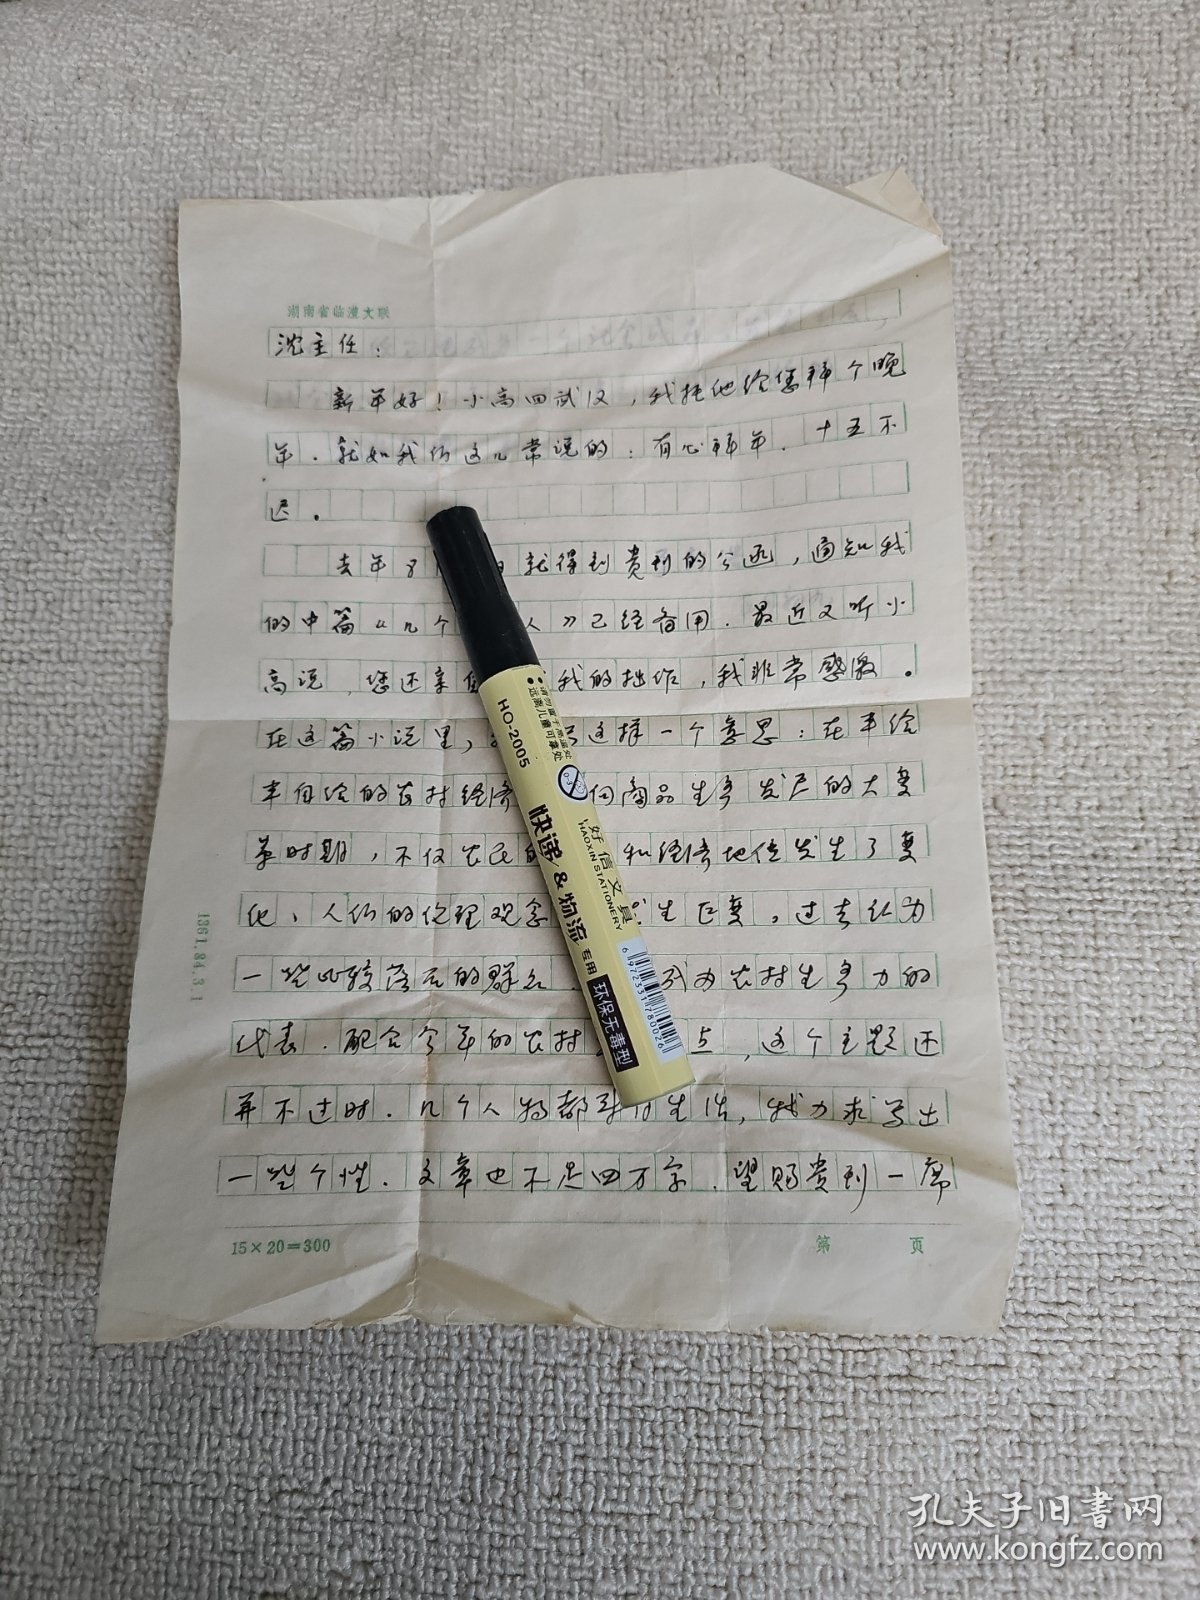 湖南省临澧文联
沈主任：
新年好！小高回武汉，我托他给您拜个晚
年．就如我们这儿常说的：有心拜年．十五不
迟．
去年8 就得到贵刊的公函，通知我
的中篇《几个 人》已经备用．最近又听小
高说，您还亲 我的拙作，我非常感激．
在这篇小说里， 这样一个意思：在半给
半自给的农村经济 向商品生产发展的大变
革时期，不仅农民的 和经济地位发生了变
化，人们的伦理观念 发生巨变，过去认为
一些比较落后的群众 成为农村生产力的
代表．配合今年的农村 点，这个主题还
并不过时．几个人物都 生活，我力求写出
一些个性．文章也不足四万字．望赐贵刊一席
15×20＝300
第 页
1361.84.3.1
请勿置于高温处
远离儿童可拿处
HO-2005
快递&物流 专用 环保无毒型
好信文具
HAOXIN STATIONERY
6972331780026
孔夫子旧书网
www.kongfz.com